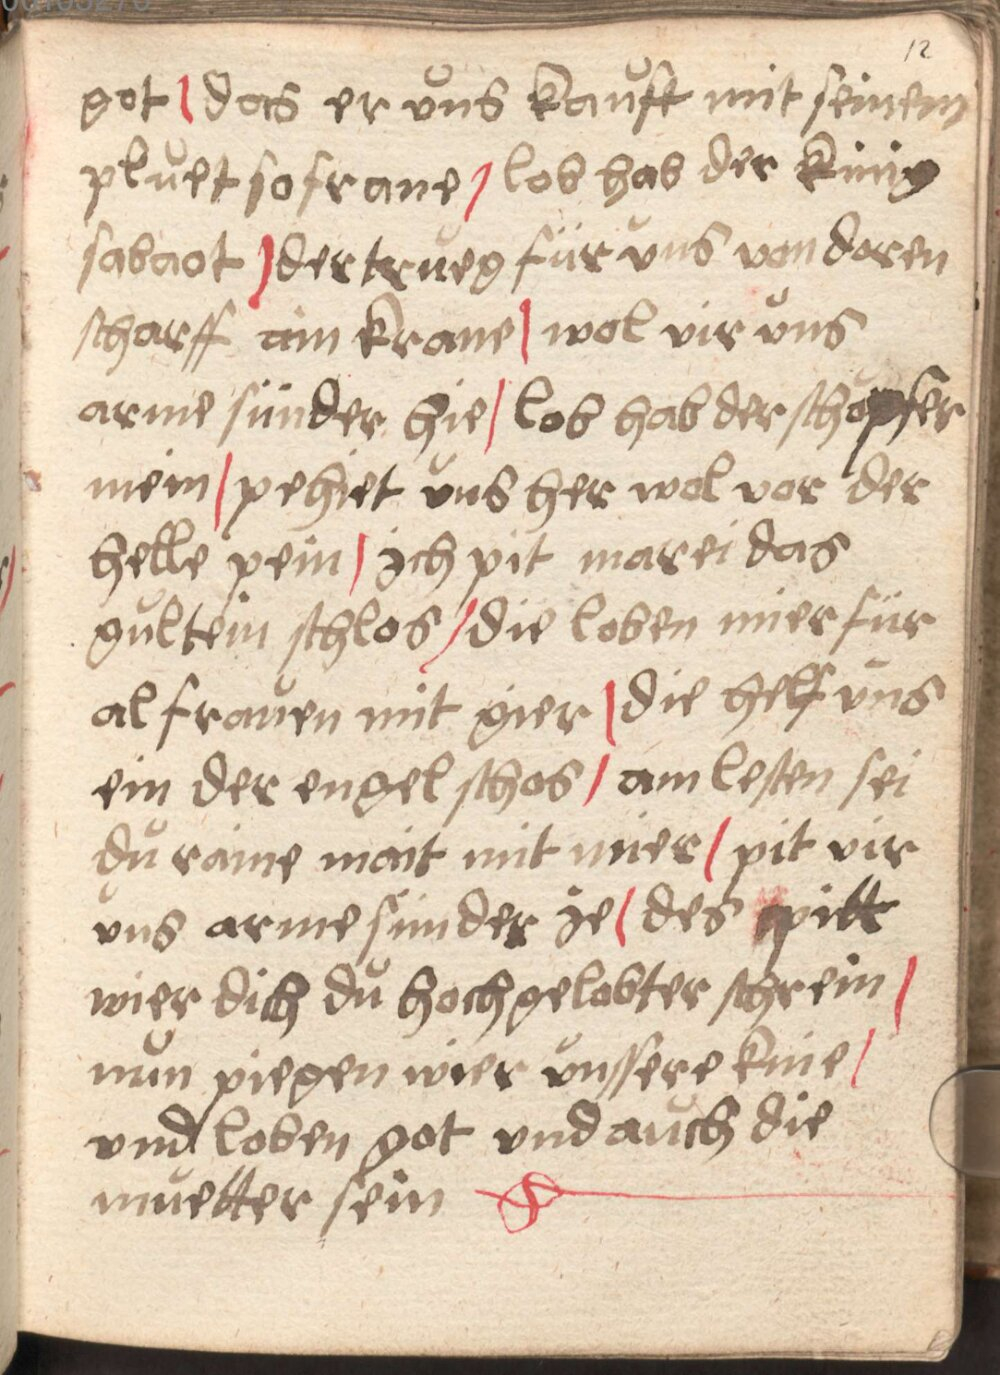 12
got / das er uns kauft mit seinem
pluet so frane / lob hab der kinig
sabaot / der trueg für uns von doren
scharff ain krane / wol vir uns
arme sünder hie / lob hab der schöpfer
mein / pehiet uns her wol vor der
helle pein / ich pit marei das
gultein schlos / die loben mier für
al frauen mit gier / die helf uns
ein der engel schos / am lesten sei
du raine mait mit mier / pit vir
uns arme sünder je / des pitt
wier dich du hochgelobter schrein /
nun piegen wier unssere knie /
und loben got und auch die
muetter sein